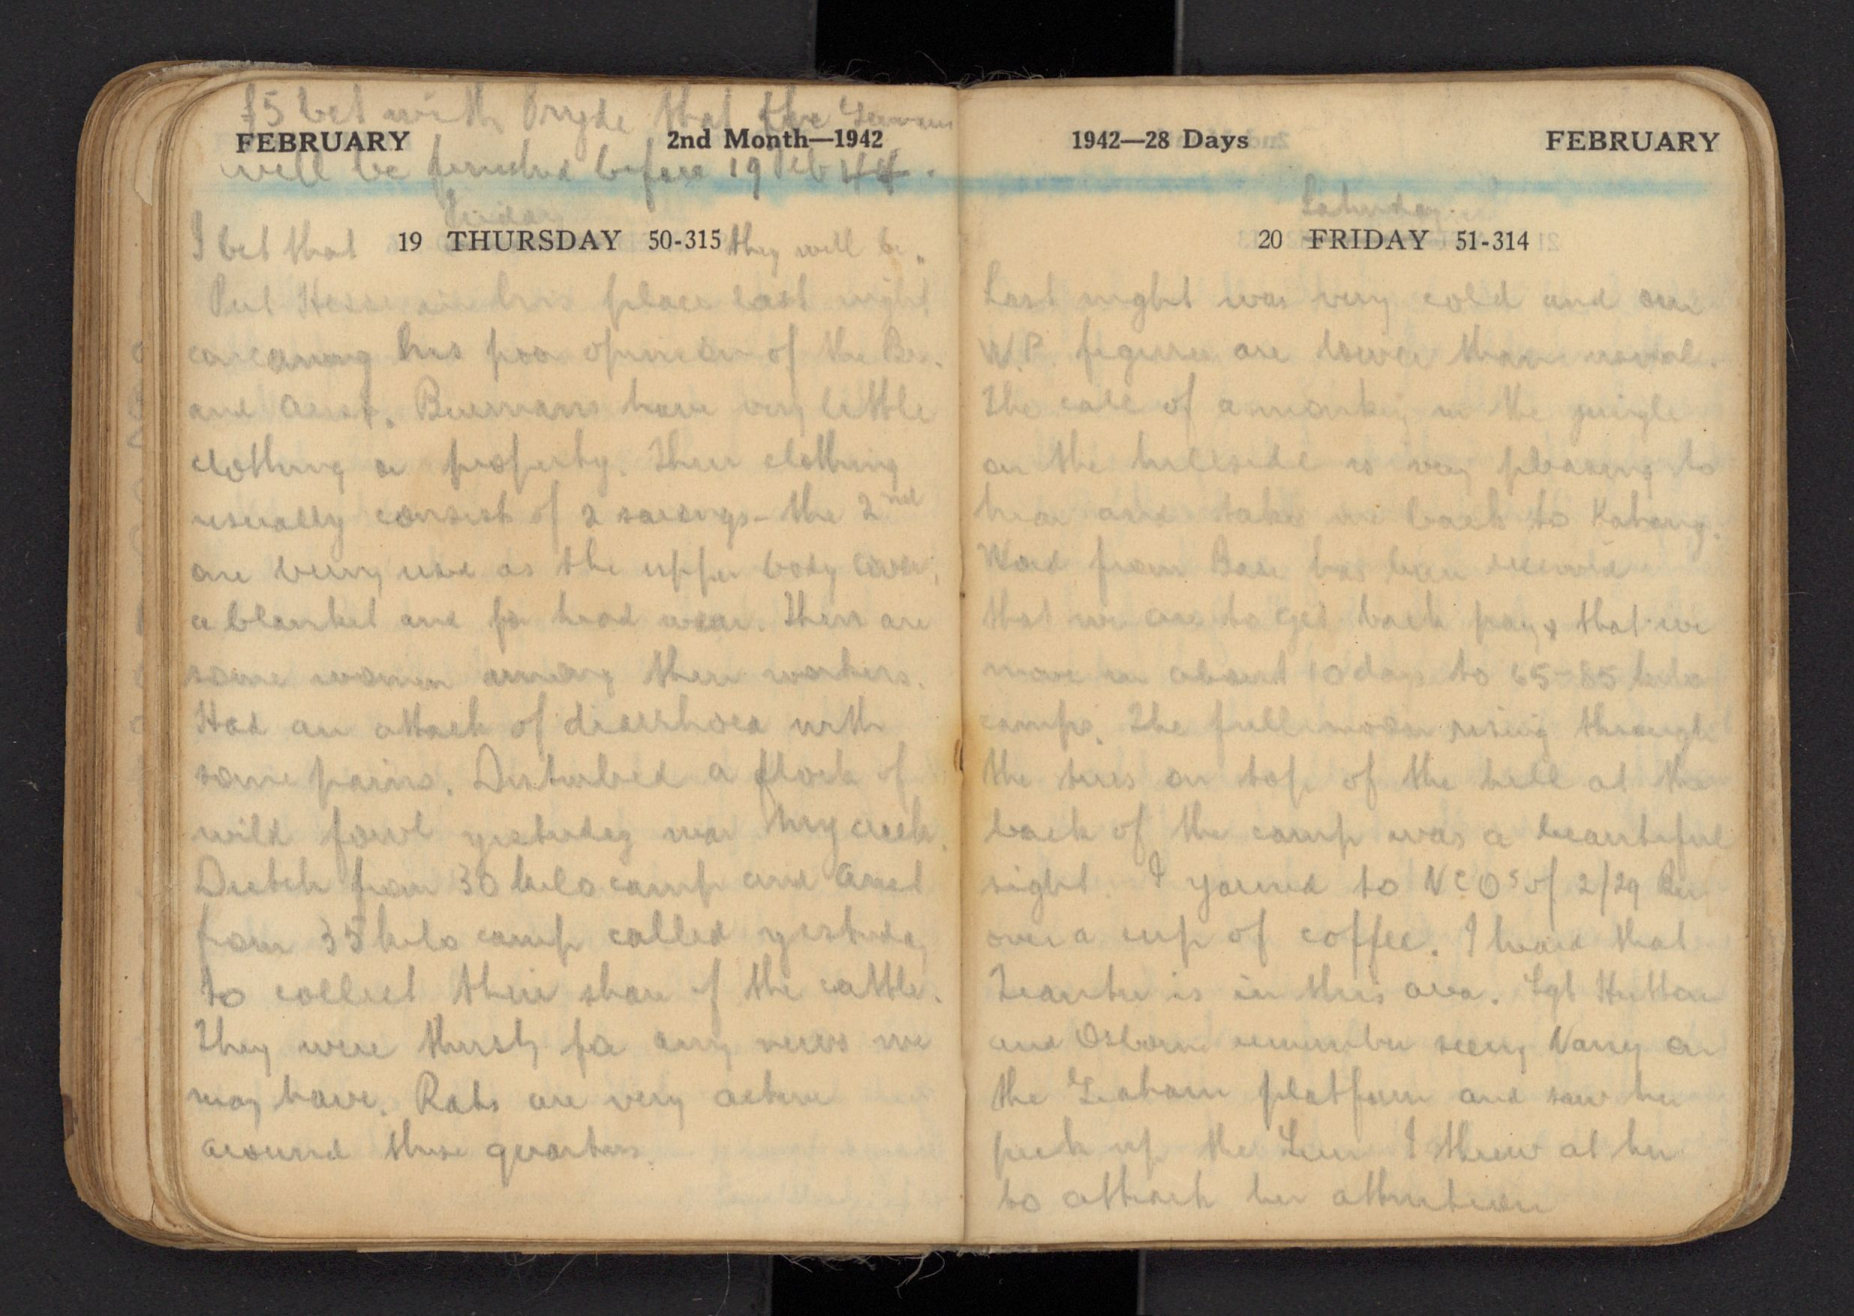 £5 bet with Pryde that the Germans
FEBRUARY 2nd Month—1942
will be finished before 19 Feb 44.
Friday
I bet that 19 THURSDAY 50-315 they will be.
Put Hesse in his place last night
concerning his poor opinion of the Br.
and Aust. Burmans have very little
clothing or property. Their clothing
usually consist of 2 sarongs - the 2nd
are being used as the upper body cover,
a blanket and for head wear. There are
some women among their workers.
Had an attack of diarrhoea with
some pains. Disturbed a flock of
wild fowl yesterday near creek.
Dutch from 30 kilo camp and Aust
from 35 kilo camp called yesterday
to collect their share of the cattle.
They were thirsty for any news we
may have. Rats are very active
around these quarters.
1942—28 Days FEBRUARY
Saturday
20 FRIDAY 51-314
Last night was very cold and our
W.P. figures are lower than usual.
The call of a monkey in the jungle
on the hillside is very pleasing to
hear and take me back to Kahang.
Word from Base has been received
that we are to get back pay & that we
move in about 10 days to 65-85 kilo
camps. The full moon rising through
the trees on top of the hill at the
back of the camp was a beautiful
sight. I yarned to NCOs of 2/29 Bn
over a cup of coffee. I heard that
is in this area. Sgt Hutton
and Osborne remember seeing Nancy on
the platform and saw her
pick up the I threw at her
to attract her attention